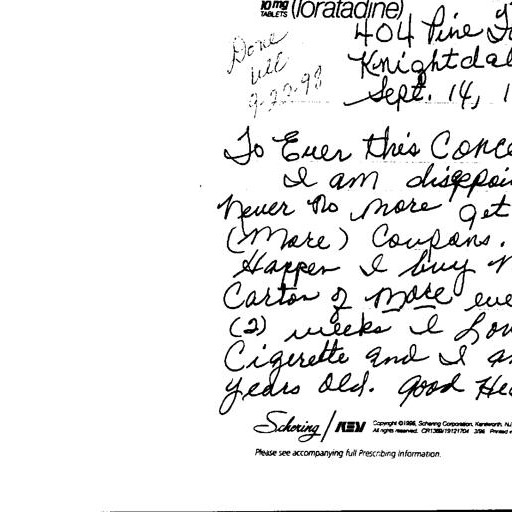 10 mg TABLETS (loratadine)
404 Pine
Knightdal
Sept. 14, 1
Done
9-22-98
To Ever this Conce
I am disappoi
Never No More get
(More) Coupons.
Happen I buy
Carton of More eve
(2) weeks I Lov
Cigerette and I a
years old. Good He
Schering / KEY
Copyright ©1996, Schering Corporation, Kenilworth, NJ
All rights reserved. CR1389/19121704 3/96 Printed
Please see accompanying full Prescribing Information.